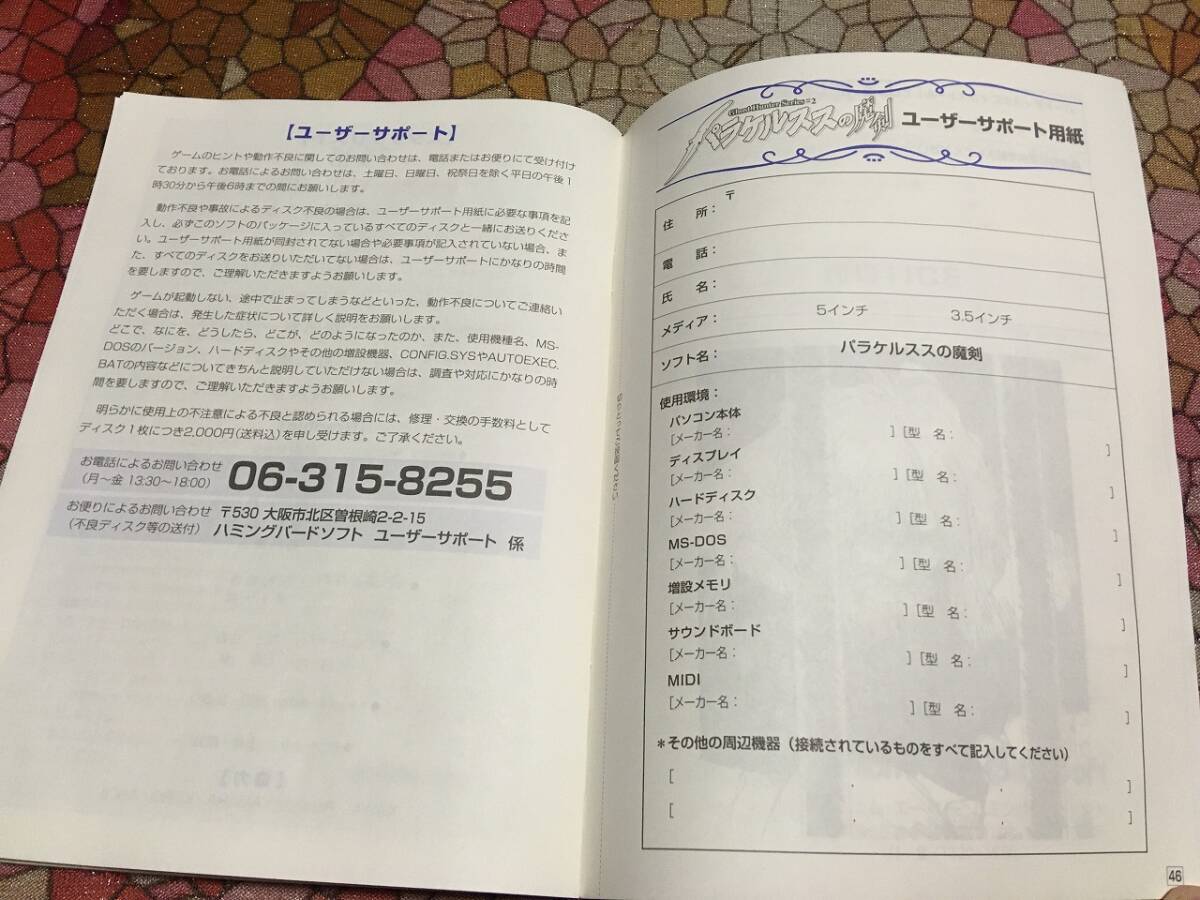 【ユーザーサポート】
ゲームのヒントや動作不良に関してのお問い合わせは、電話またはお便りにて受け付け
ております。お電話によるお問い合わせは、土曜日、日曜日、祝祭日を除く平日の午後1
時30分から午後6時までの間にお願いします。
動作不良や事故によるディスク不良の場合は、ユーザーサポート用紙に必要な事項を記
入し、必ずこのソフトのパッケージに入っているすべてのディスクと一緒にお送りくださ
い。ユーザーサポート用紙が同封されてない場合や必要事項が記入されていない場合、ま
た、すべてのディスクをお送りいただいてない場合は、ユーザーサポートにかなりの時間
を要しますので、ご理解いただきますようお願いします。
ゲームが起動しない、途中で止まってしまうなどといった、動作不良についてご連絡い
ただく場合は、発生した症状について詳しく説明をお願いします。
どこで、なにを、どうしたら、どこが、どのようになったのか、また、使用機種名、MS-
DOSのバージョン、ハードディスクやその他の増設機器、CONFIG.SYSやAUTOEXEC.
BATの内容などについてきちんと説明していただけない場合は、調査や対応にかなりの時
間を要しますので、ご理解いただきますようお願いします。
明らかに使用上の不注意による不良と認められる場合には、修理・交換の手数料として
ディスク1枚につき2,000円(送料込)を申し受けます。ご了承ください。
お電話によるお問い合わせ
(月〜金 13:30〜18:00) 06-315-8255
お便りによるお問い合わせ 〒530 大阪市北区曽根崎2-2-15
(不良ディスク等の送付) ハミングバードソフト ユーザーサポート 係
Ghost Hunter Series#2
パラケルススの魔剣 ユーザーサポート用紙
住 所： 〒
電 話：
氏 名：
メディア： 5インチ 3.5インチ
ソフト名： パラケルススの魔剣
使用環境：
パソコン本体
[メーカー名： ] [型 名： ]
ディスプレイ
[メーカー名： ] [型 名： ]
ハードディスク
[メーカー名： ] [型 名： ]
MS-DOS
[メーカー名： ] [型 名： ]
増設メモリ
[メーカー名： ] [型 名： ]
サウンドボード
[メーカー名： ] [型 名： ]
MIDI
[メーカー名： ] [型 名： ]
＊その他の周辺機器（接続されているものをすべて記入してください）
[ ]
[ ]
46